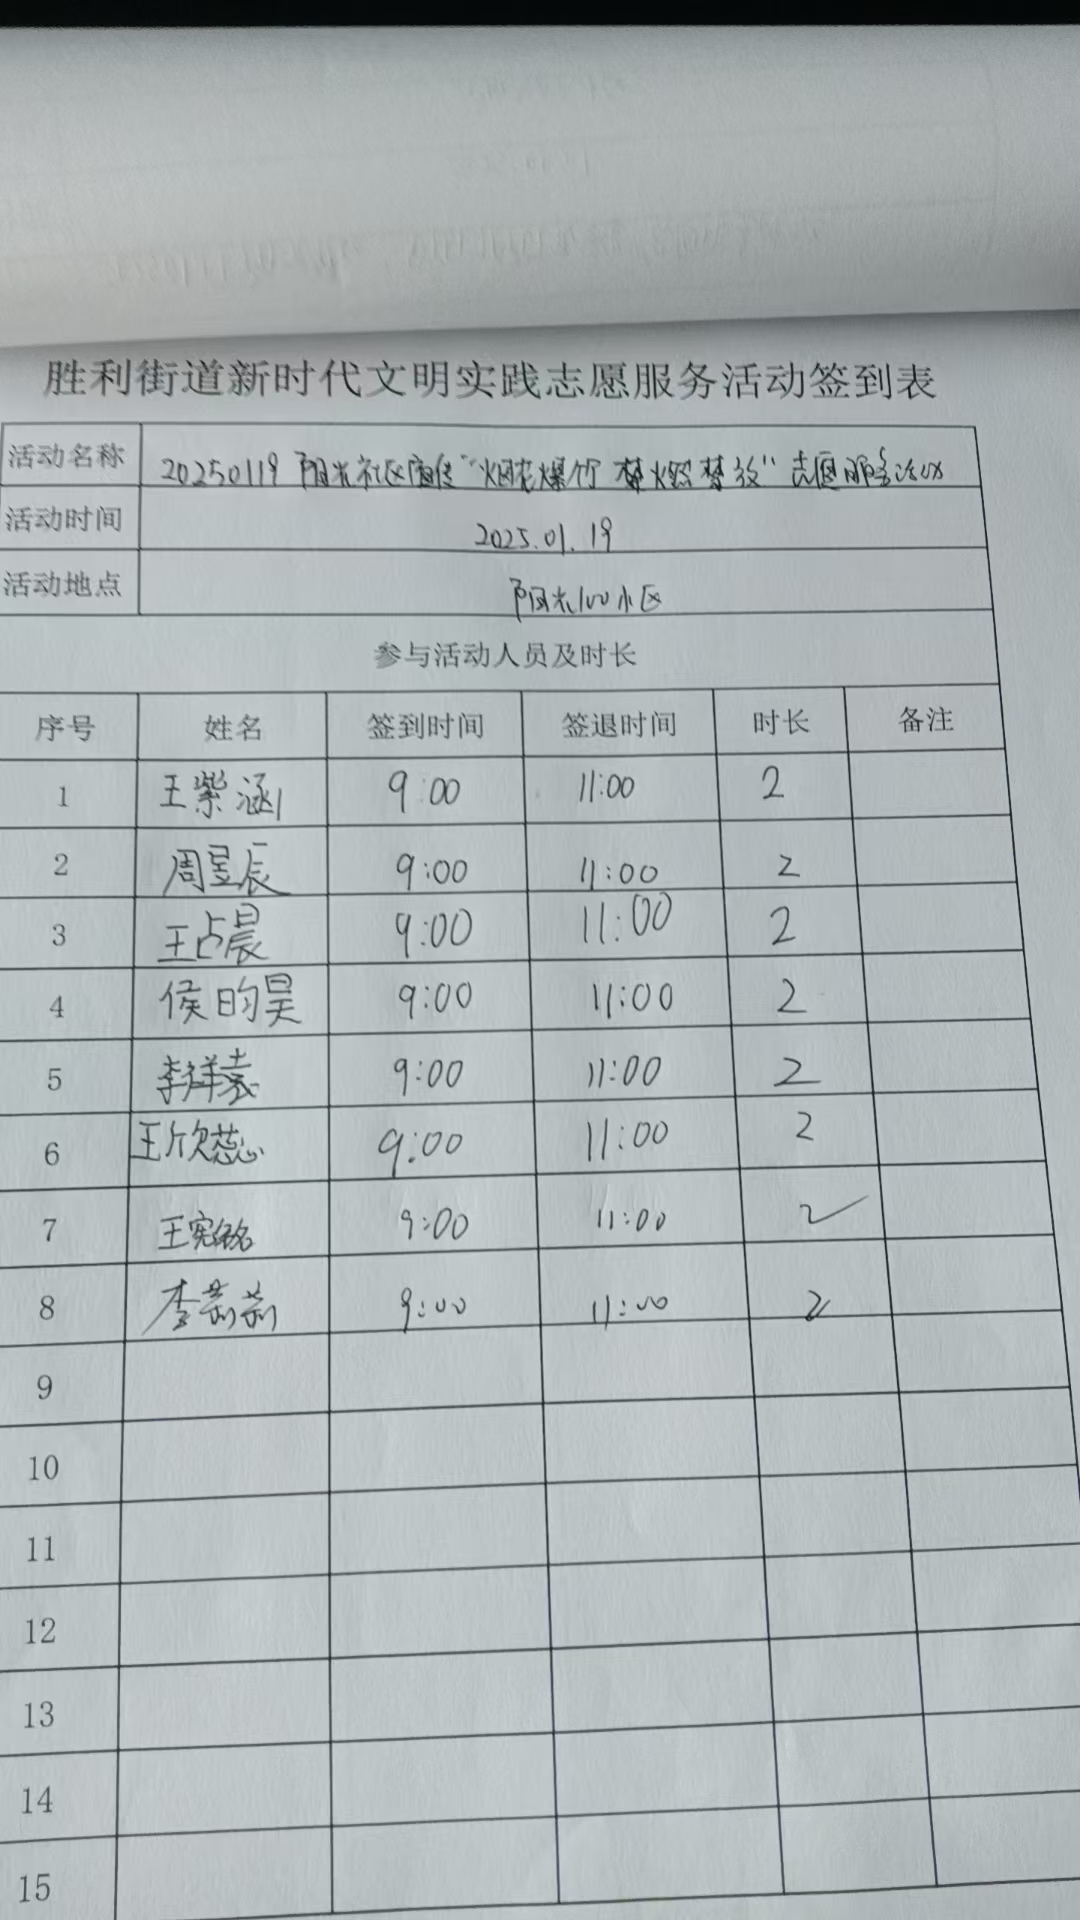 胜利街道新时代文明实践志愿服务活动签到表
活动名称 20250119 阳光社区宣传"烟花爆竹 禁燃禁放"志愿服务活动
活动时间 2025.01.19
活动地点 阳光100小区
参与活动人员及时长
序号 姓名 签到时间 签退时间 时长 备注
1 王紫涵 9:00 11:00 2
2 周昱辰 9:00 11:00 2
3 王占晨 9:00 11:00 2
4 侯昀昊 9:00 11:00 2
5 李祥 9:00 11:00 2
6 王欣蕊 9:00 11:00 2
7 王宪铭 9:00 11:00 2
8 李莉莉 9:00 11:00 2
9
10
11
12
13
14
15